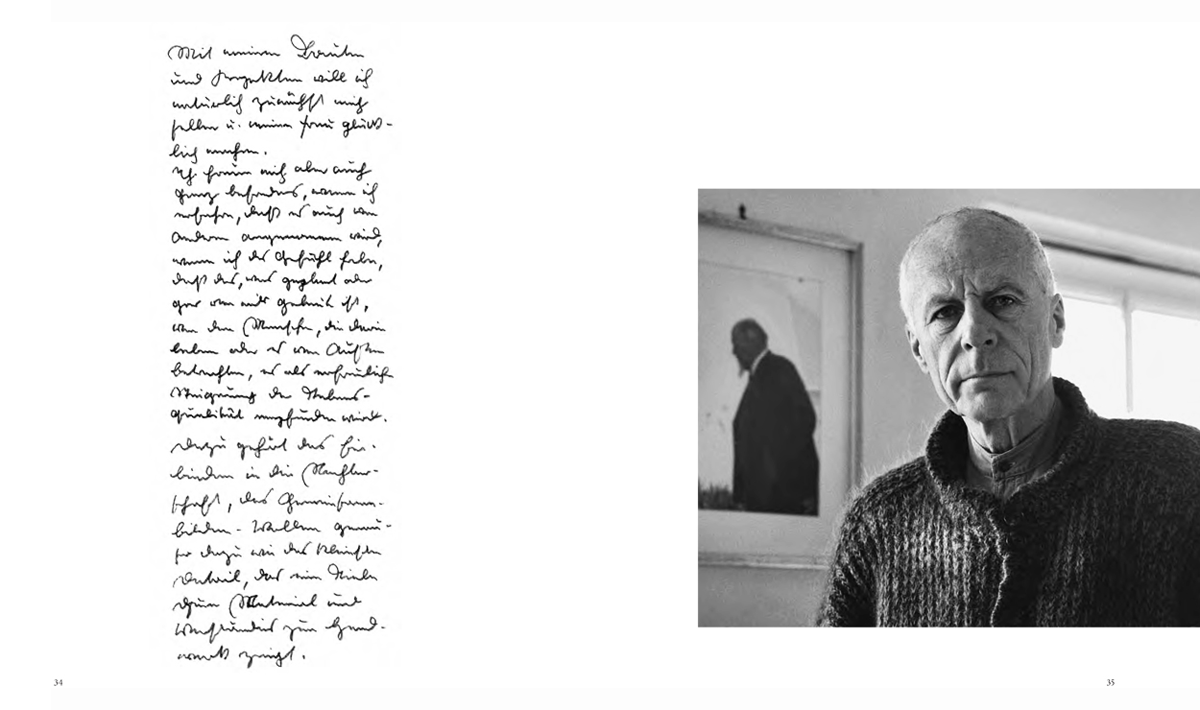 Mit meinen Bauten
und Projekten will ich
natürlich zunächst mich
selber u. meine Frau glück-
lich machen.
Ich freue mich aber auch
ganz besonders, wenn ich
erfahre, daß es auch von
Anderen angenommen wird,
wenn ich das Gefühl habe,
daß das, was geplant oder
gar von mir gebaut ist,
von den Menschen, die darin
leben oder es von Außen
betrachten, es als erfreuliche
Steigerung der Lebens-
qualität empfunden wird.
Dazu gehört das Ein-
binden in die Nachbar-
schaft, das
bilden - 
dazu wie das kleinste
Detail, das eine Liebe
zum Material und
Verständnis zum Hand-
werk zeigt.
34
35